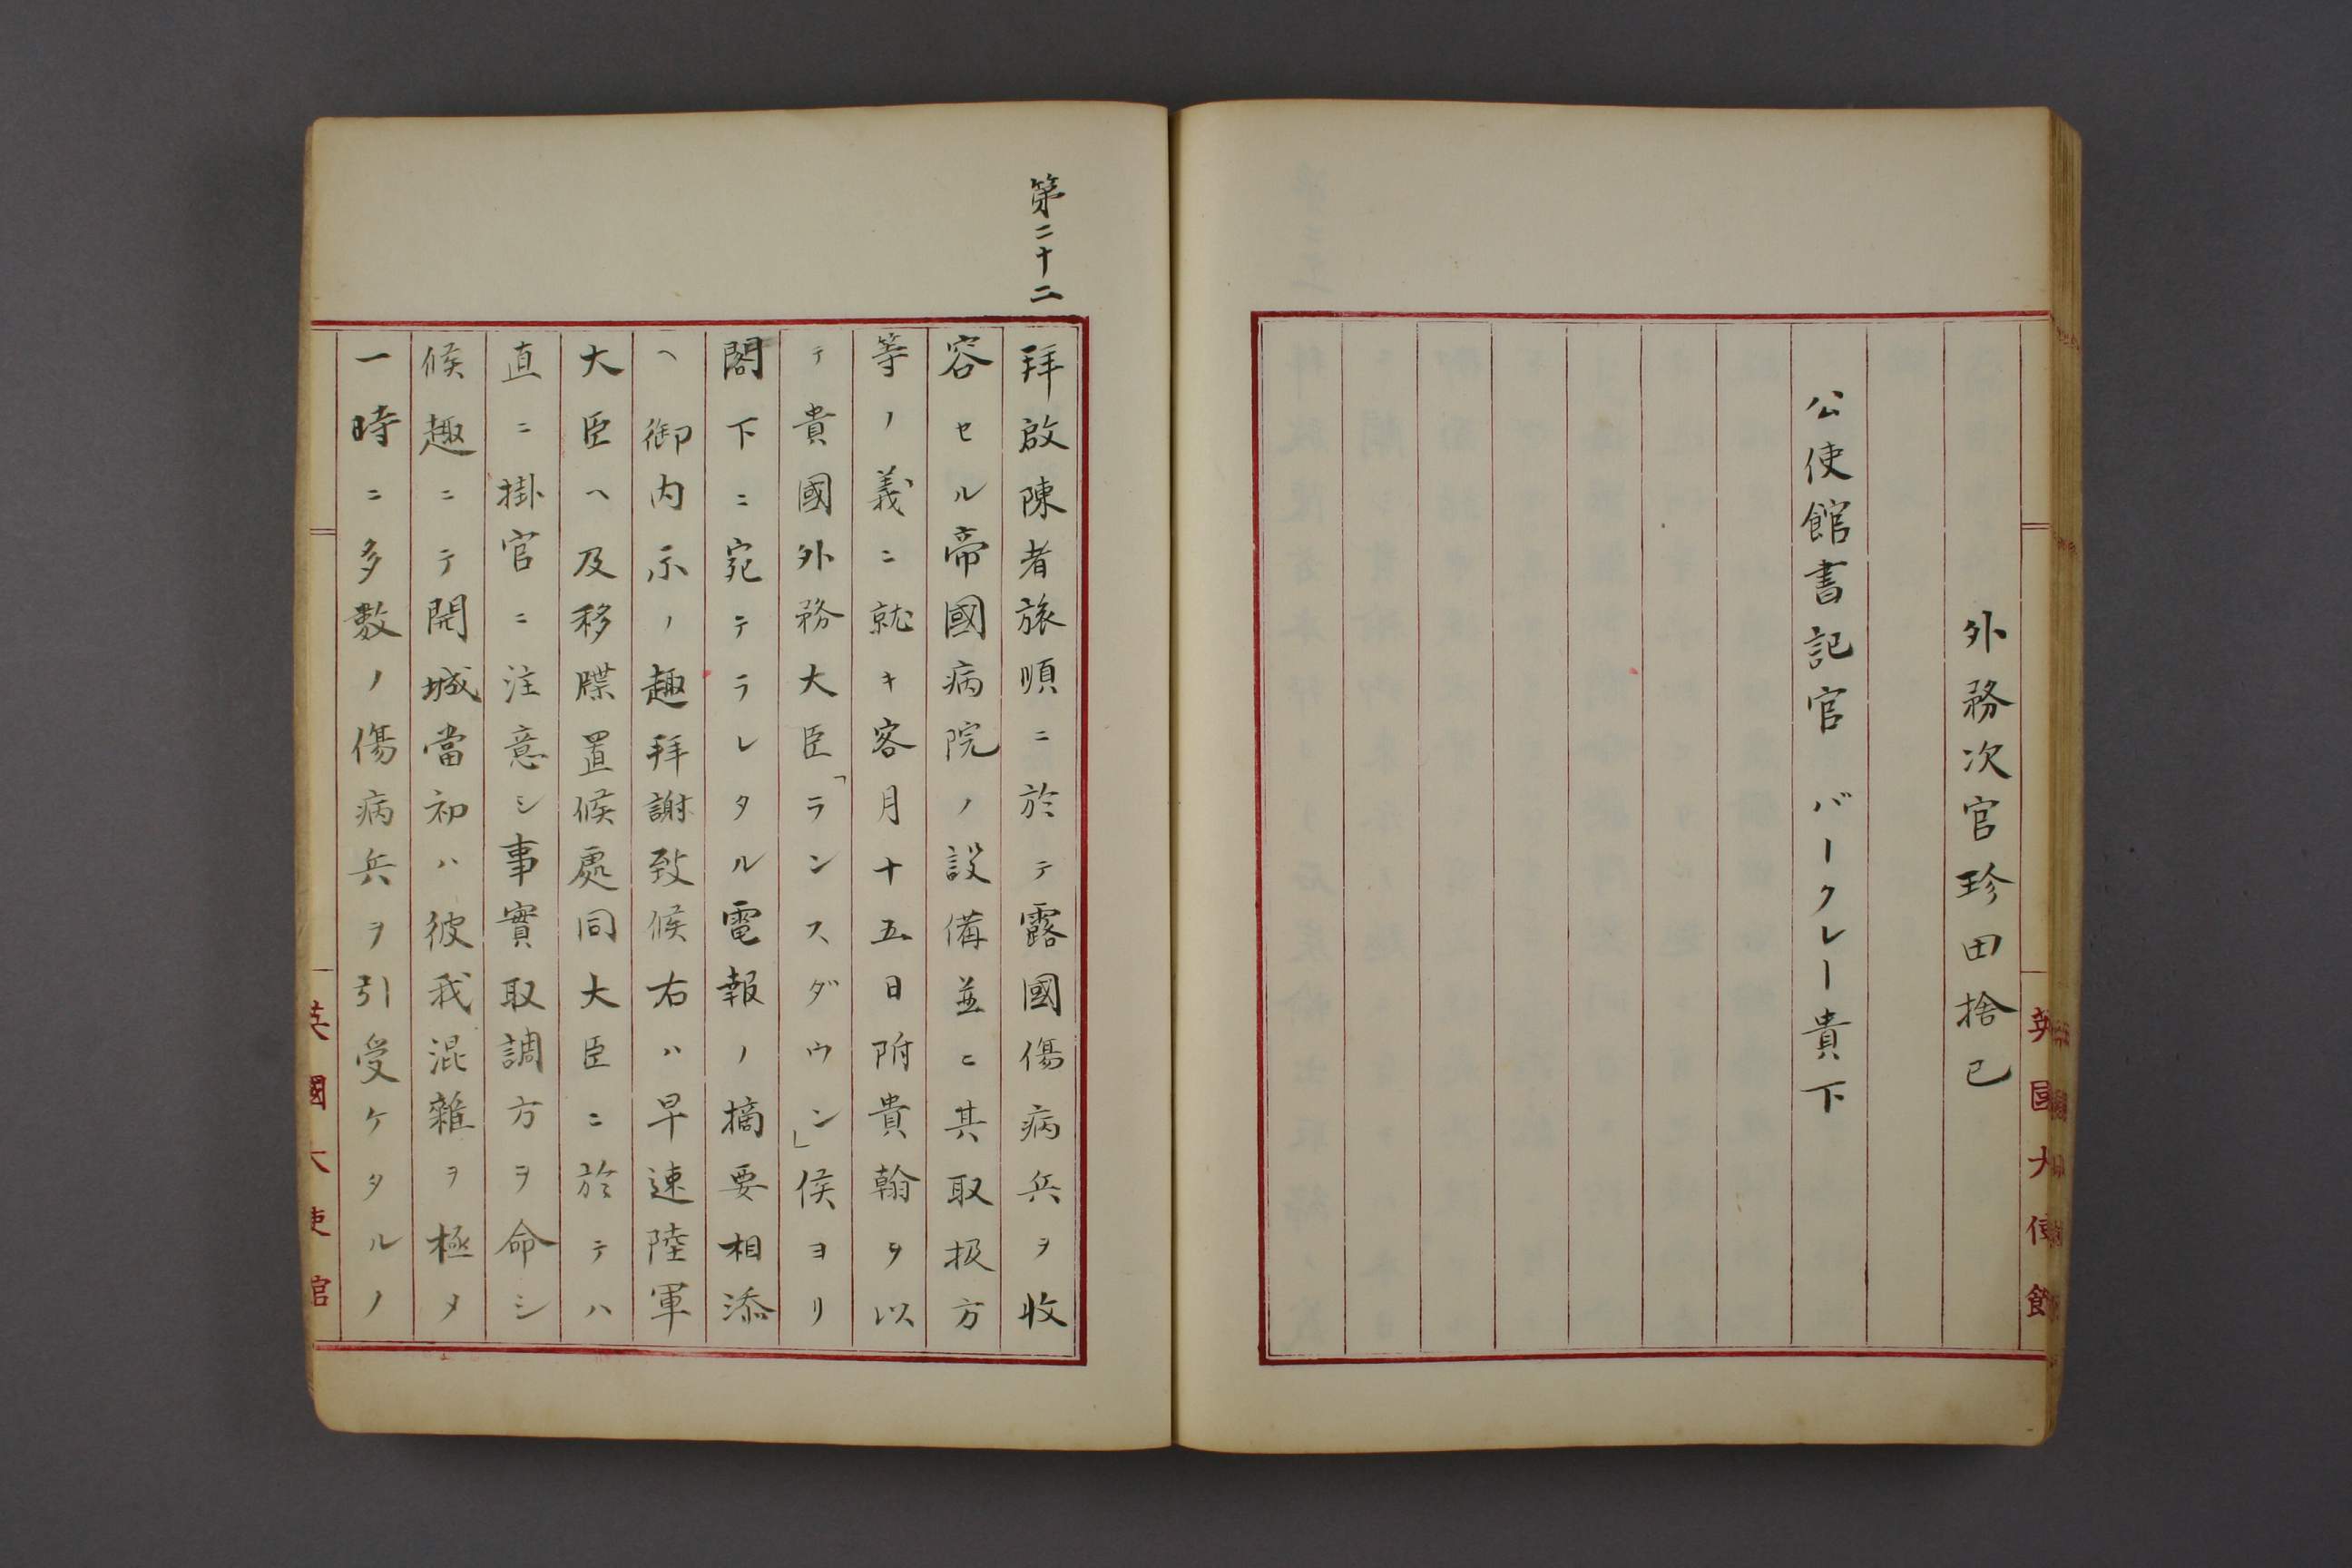 外務次官珍田捨巳
公使館書記官 バークレー貴下
英國大使館
第二十二
拜啟陳者旅順ニ於テ露國傷病兵ヲ收
容セル帝國病院ノ設備並ニ其取扱方
等ノ義ニ就キ客月十五日附貴翰ヲ以
テ貴國外務大臣「ランスダウン」侯ヨリ
閣下ニ宛テラレタル電報ノ摘要相添
ヘ御内示ノ趣拜謝致候右ハ早速陸軍
大臣ヘ及移牒置候處同大臣ニ於テハ
直ニ掛官ニ注意シ事實取調方ヲ命シ
候趣ニテ開城當初ハ彼我混雜ヲ極メ
一時ニ多數ノ傷病兵ヲ引受ケタルノ
英國大使館